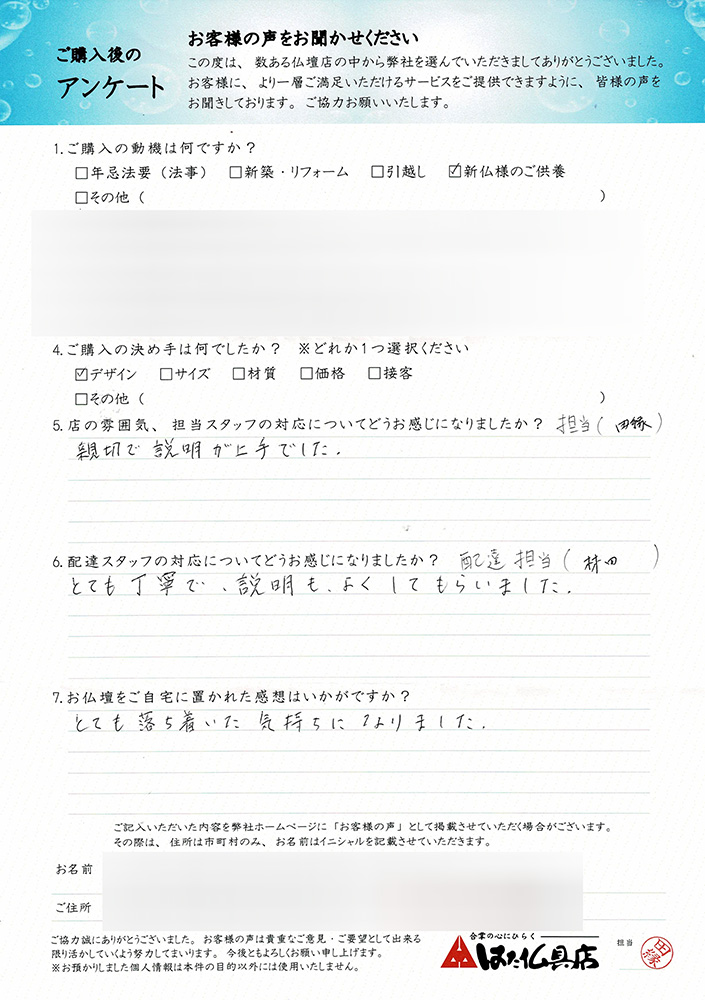 ご購入後の
アンケート
お客様の声をお聞かせください
この度は、数ある仏壇店の中から弊社を選んでいただきましてありがとうございました。
お客様に、より一層ご満足いただけるサービスをご提供できますように、皆様の声を
お聞きしております。ご協力お願いいたします。
1.ご購入の動機は何ですか？
□年忌法要（法事） □新築・リフォーム □引越し ☑新仏様のご供養
□その他（ ）
4.ご購入の決め手は何でしたか？ ※どれか1つ選択ください
☑デザイン □サイズ □材質 □価格 □接客
□その他（ ）
5.店の雰囲気、担当スタッフの対応についてどうお感じになりましたか？ 担当(田縁)
親切で説明が上手でした.
6.配達スタッフの対応についてどうお感じになりましたか？ 配達担当(林田)
とても丁寧で、説明も、よくしてもらいました.
7.お仏壇をご自宅に置かれた感想はいかがですか？
とても落ち着いた気持ちになりました.
ご記入いただいた内容を弊社ホームページに「お客様の声」として掲載させていただく場合がございます。
その際は、住所は市町村のみ、お名前はイニシャルを記載させていただきます。
お名前
ご住所
ご協力誠にありがとうございました。お客様の声は貴重なご意見・ご要望として出来る
限り活かしていくよう努力してまいります。今後ともよろしくお願い申し上げます。
※お預かりしました個人情報は本件の目的以外には使用いたしません。
合掌の心にひらく
はた仏具店
担当
田縁